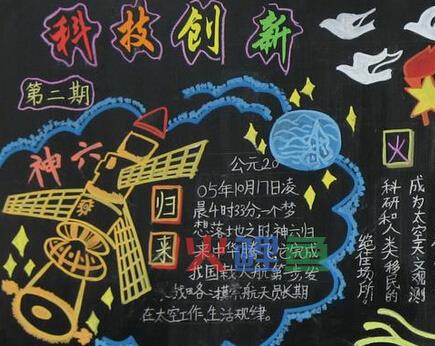 科技创新
第二期
神六
归
来
公元20
05年10月17日凌
晨4时33分,一个梦
想落地之时神六归
来
完成
我国载人
航天员长期
在太空工作、生活规律。
火
成为太空天文观测
科研和人类移民的
绝佳场所